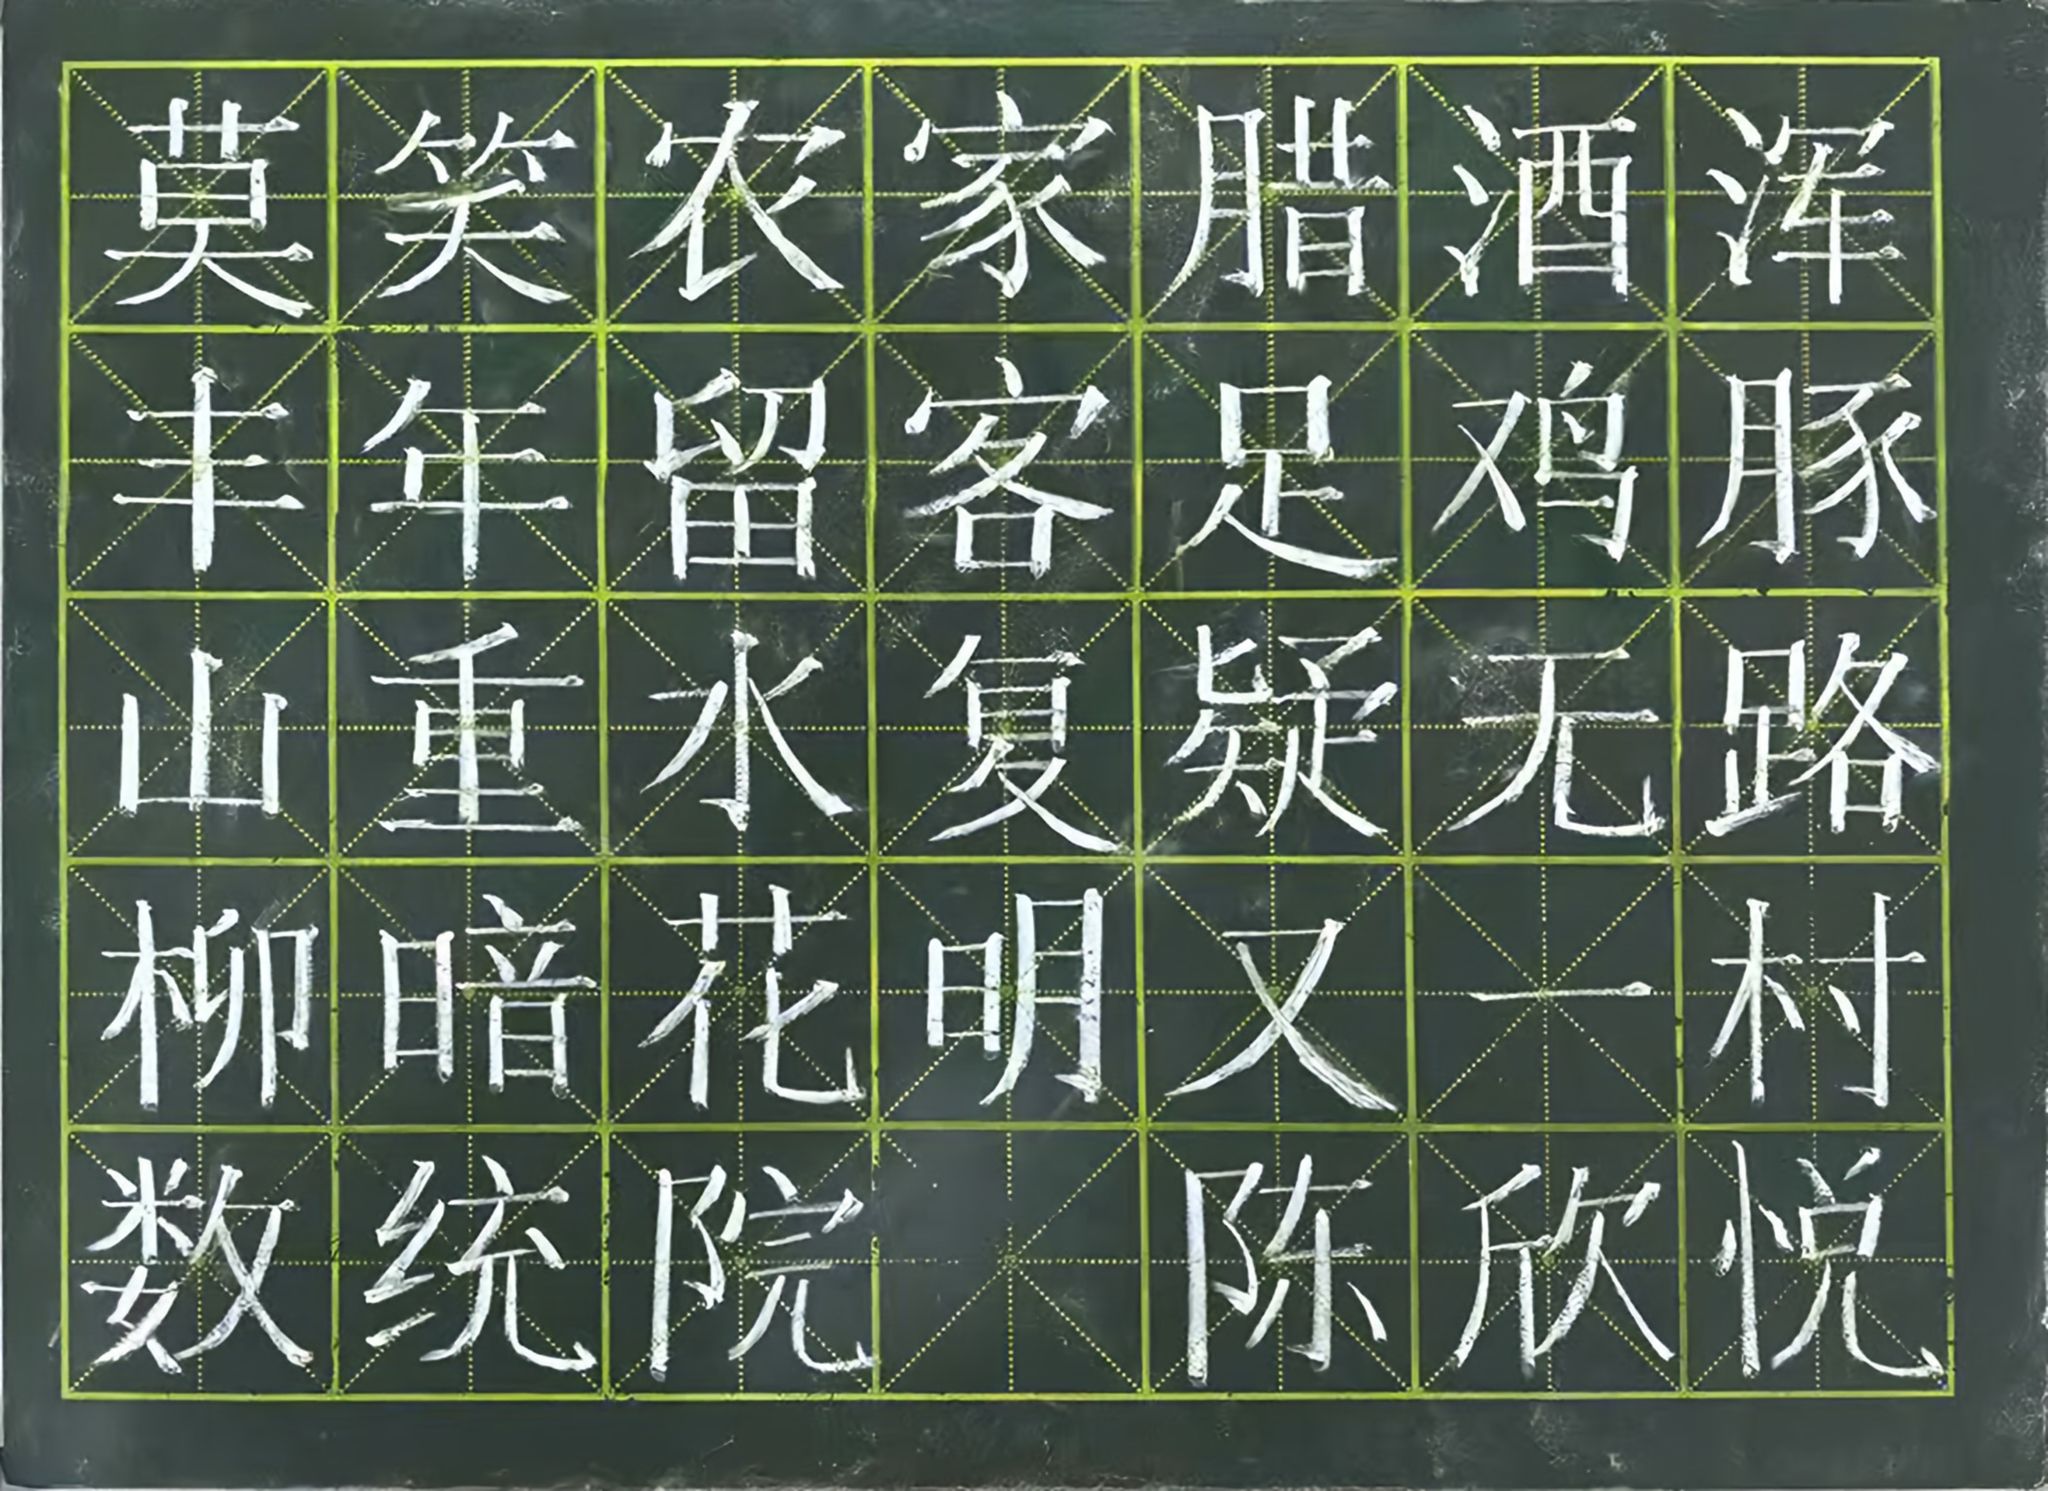 莫笑农家腊酒浑
丰年留客足鸡豚
山重水复疑无路
柳暗花明又一村
数统院 陈欣悦